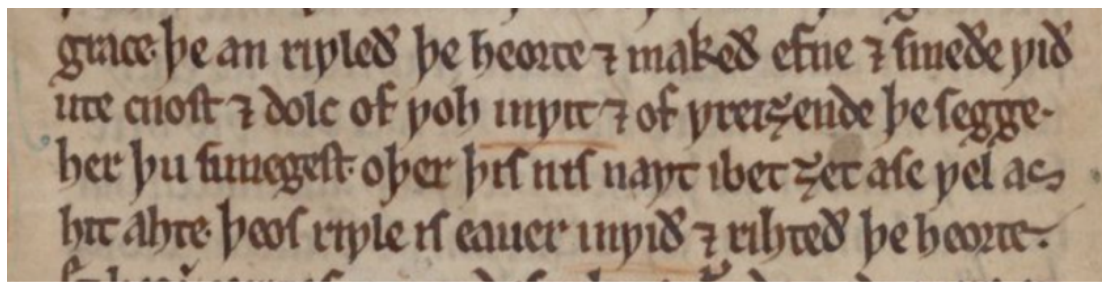 grace· þe an riƿleð þe heorte ⁊ makeð efne ⁊ smeðe ƿið
ute cnost ⁊ dolc of ƿoh inƿit ⁊ of ƿreiȝende þe segge·
her þu sunegest· oþer þis nis naƿt ibet ȝet ase ƿel as
hit ahte· þeos riƿle is eauer inƿið ⁊ rihteð þe heorte·